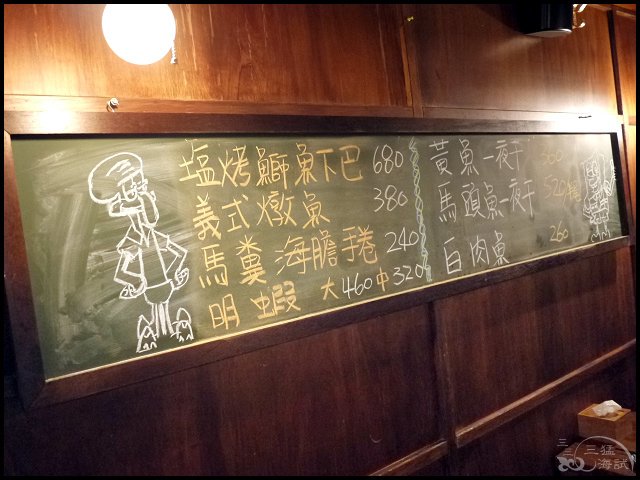 塩烤鰤魚下巴 680
義式燉魚 380
馬糞海膽手卷 240
明蝦 大460 中320
黃魚一夜干 360
馬頭魚一夜干 520
白肉魚 260
三猛
海試